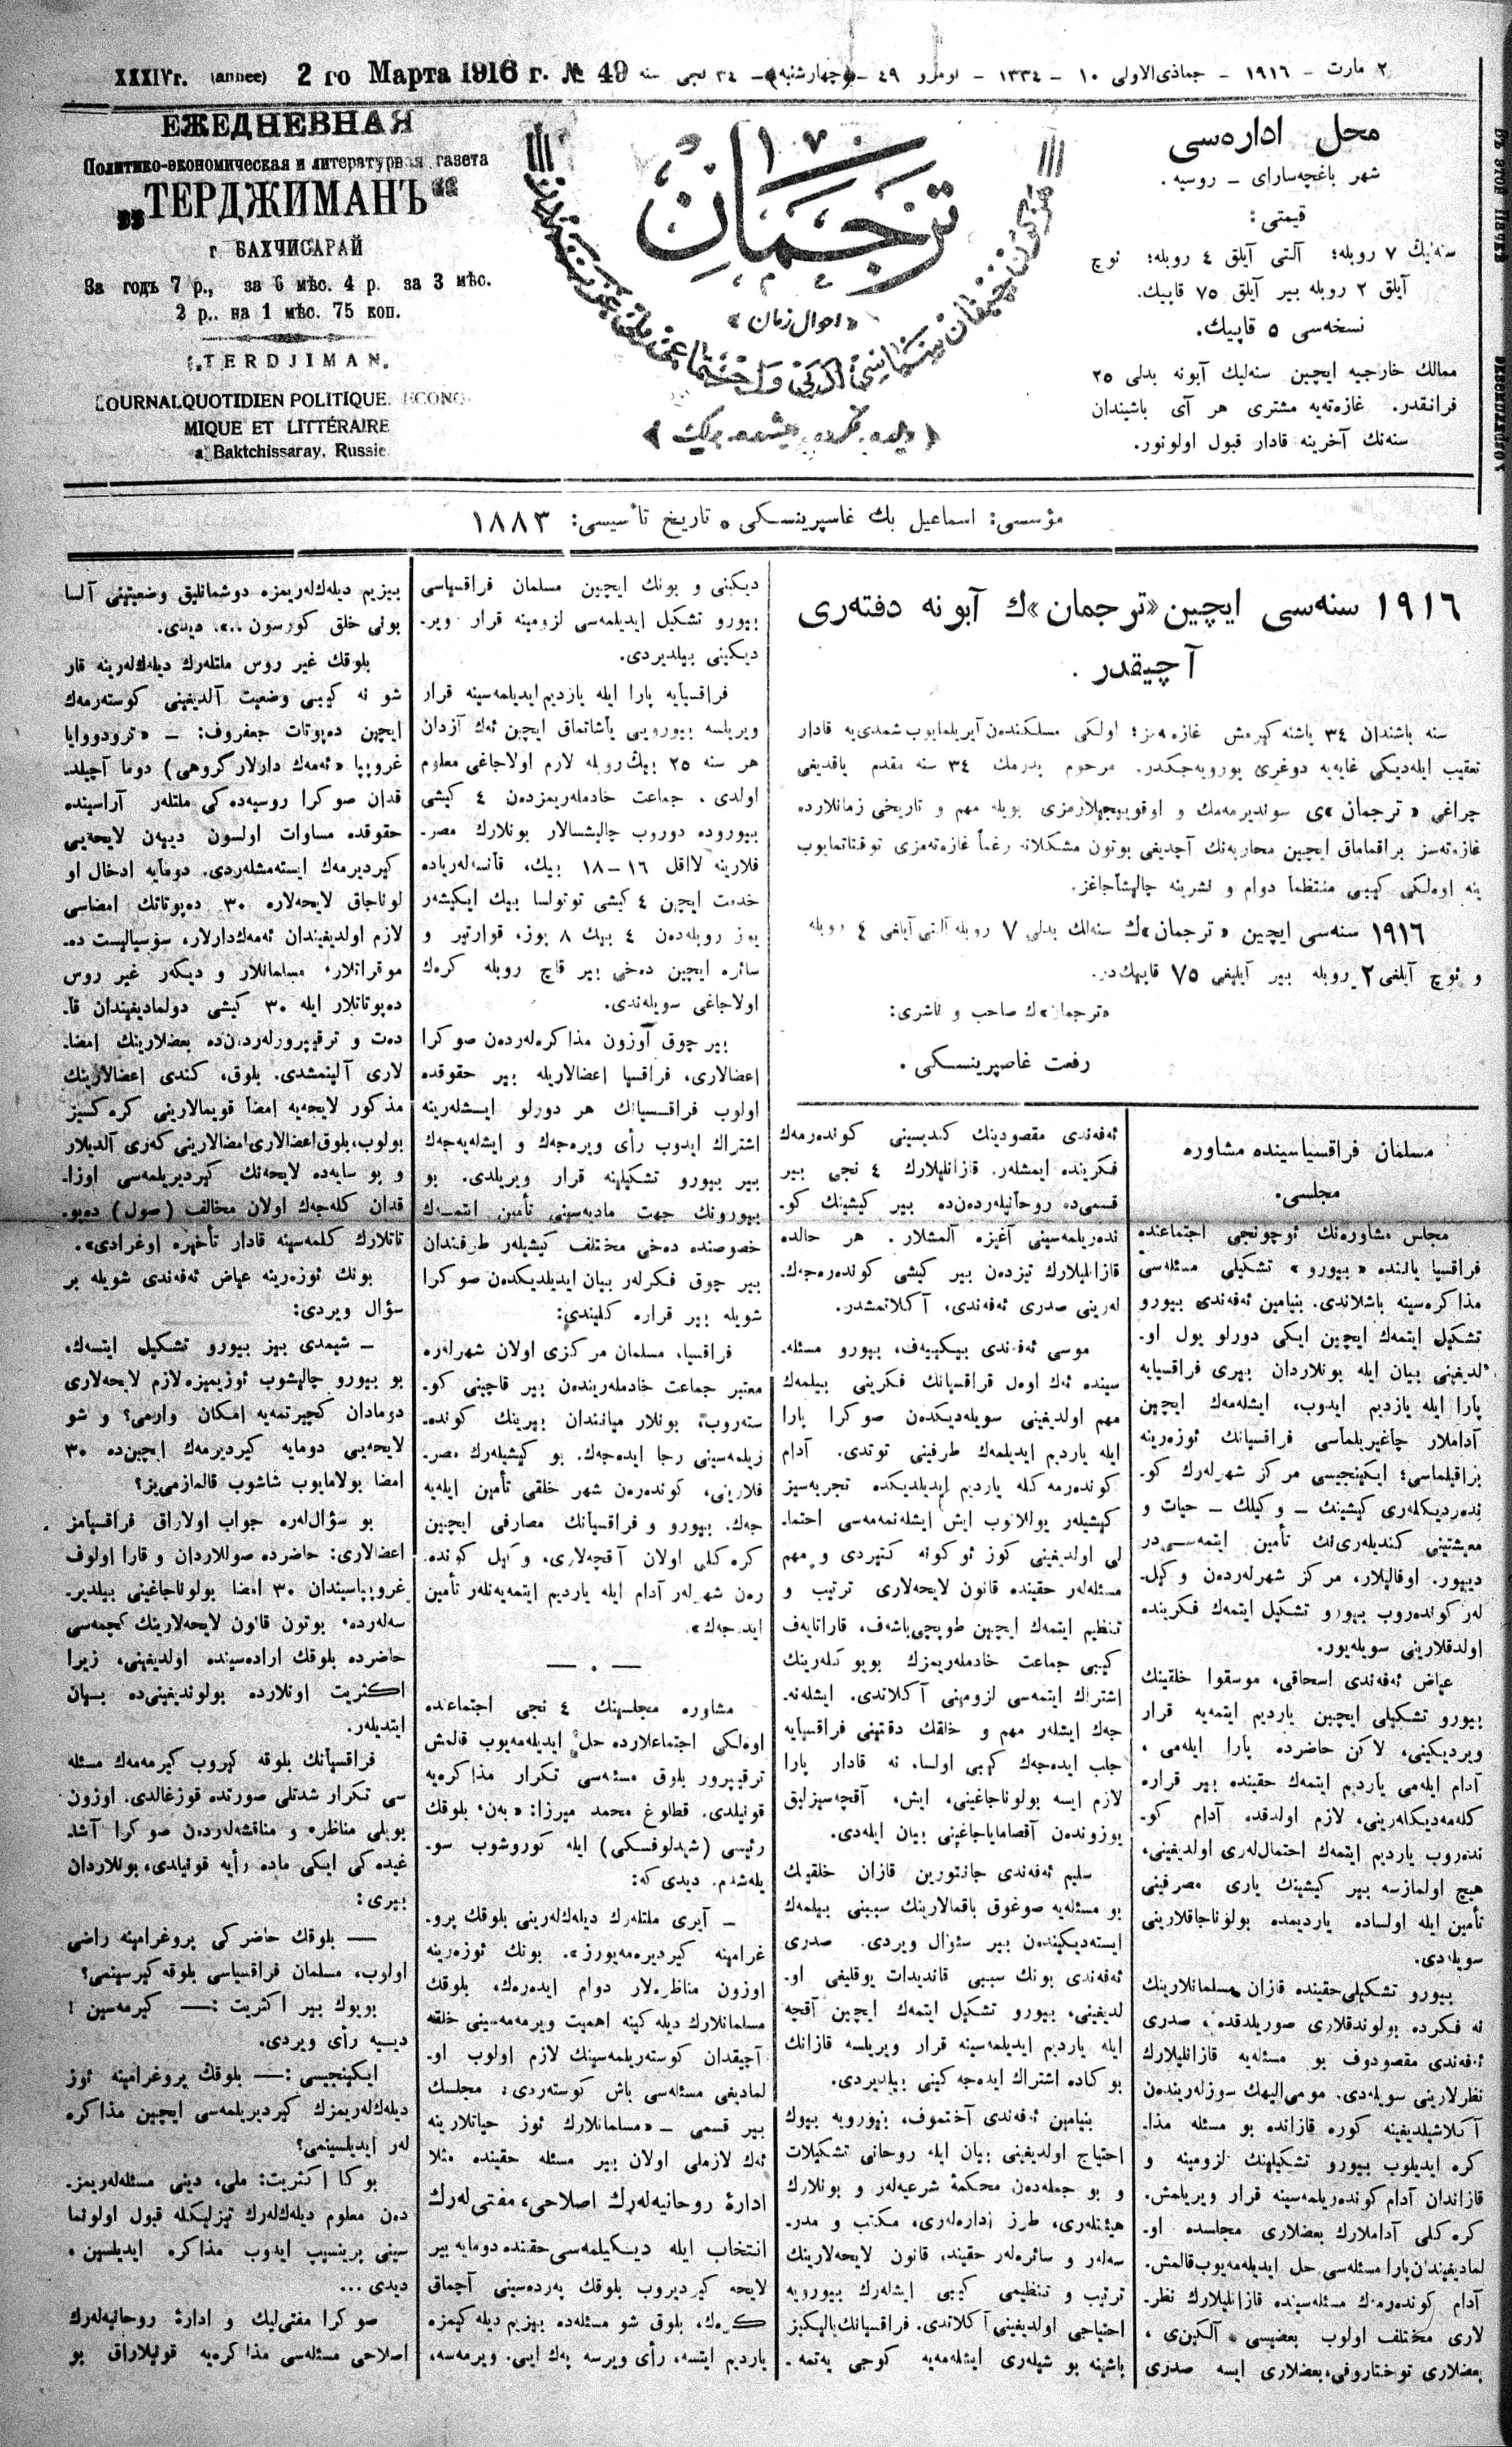 XXXIVг. (annee) 2 го Марта 1916 г. № 49
٢ مارت – ١٩١٦ – جماذی‌الاولی ١٠ – ١٣٣٤ – نومرو ٤٩ – «چهارشنبه» – ٣٤ نجی سنه
ЕЖЕДНЕВНАЯ
Политико-экономическая и литературная газета
„ТЕРДЖИМАНЪ“
г БАХЧИСАРАЙ
За годъ 7 р., за 6 мѣс. 4 р. за 3 мѣс.
2 р.. на 1 мѣс. 75 коп.
TERDJIMAN.
JOURNALQUOTIDIEN POLITIQUE. ECONO-
MIQUE ET LITTÉRAIRE
a Baktchissaray, Russie.
ترجمان
«احوال زمان»
محل اداره‌سی
شهر باغچه‌سارای – روسیه.
قیمتی:
سنه‌لیك ٧ روبله؛ آلتی آیلق ٤ روبله؛ ئوچ
آیلق ٢ روبله بیر آیلق ٧٥ قاپیك.
نسخه‌سی ٥ قاپیك.
ممالك خارجیه ایچین سنه‌لیك آبونه بدلی ٢٥
فرانقدر. غازه‌ته‌یه مشتری هر آی باشیندان
سنه‌نك آخرینه قادار قبول اولونور.
مؤسسی: اسماعیل بك غاسپرینسکی • تاریخ تأسیسی: ١٨٨٣
١٩١٦ سنه‌سی ایچین «ترجمان»ك آبونه دفته‌ری
آچیقدر.
سنه باشندان ٣٤ یاشنه کیرمش غازه‌ته‌مز؛ اولکی مسلکندن آیریلمایوب شمدی‌یه قادار
تعقیب ایله‌دیکی غایه‌یه دوغری یورویه‌جکدر. مرحوم پدرمك ٣٤ سنه مقدم یاقدیغی
چراغی «ترجمان»ی سوندیرمه‌مك و اوقویبچیلارمزی بویله مهم و تاریخی زمانلارده
غازه‌ته‌سز براقماماق ایچین محاربه‌نك آچدیغی بوتون مشکلاته رغماً غازه‌ته‌مزی توقتاتمایوب
ینه اوه‌لکی کیبی منتظماً دوام و نشرینه چالیشاجاغز.
١٩١٦ سنه‌سی ایچین «ترجمان»ك سنه‌لك بدلی ٧ روبله آلتی آیلغی ٤ روبله
و ئوچ آیلغی ٢ روبله بیر آیلیغی ٧٥ قاپیك‌در.
«ترجمان»ك صاحب و ناشری:
رفعت غاصپرینسکی.
مسلمان فراقسیاسینده مشاوره
مجلسی.
مجلس مشاوره‌نك ئوچونجی اجتماعنده
فراقسیا یاننده «بیورو» تشکیلی مسئله‌سی
مذاکره‌سینه باشلاندی. بنیامین ئه‌فه‌ندی بیورو
تشکیل ایتمه‌ك ایچین ایکی دورلو یول او-
لدیغینی بیان ایله بونلاردان بیری فراقسیایه
پارا ایله یازدیم ایدوب، ایشله‌مه‌ك ایچین
آداملار چاغیریلماسی فراقسیانك ئوزه‌رینه
براقیلماسی؛ ایکینجیسی مرکز شهرلرك کو-
نده‌ردیکله‌ری کیشینك – و کیلك – حیات و
معیشتینی کندیله‌ری‌نك تأمین ایتمه‌سی‌در
دییور. اوفالیلار، مرکز شهرله‌ردن وکیل-
لر کونده‌روب بیورو تشکیل ایتمه‌ك فکرینده
اولدقلارینی سویله‌یور.
عیاض ئه‌فه‌ندی اسحاقی، موسقوا خلقینك
بیورو تشکیلی ایچین یاردیم ایتمه‌یه قرار
ویردیکینی، لاکن حاضرده پارا ایله‌می،
آدام ایله‌می یاردیم ایتمه‌ك حقینده بیر قراره
کله‌مه‌دیکله‌رینی، لازم اولدقده آدام کو-
نده‌روب یاردیم ایتمه‌ك احتمال‌له‌ری اولدیغینی،
هیچ اولمازسه بیر کیشینك یاری مصرفینی
تأمین ایله اولساده یاردیمده بولوناجاقلارینی
سویله‌دی.
بیورو تشکیلی حقینده قازان مسلمانلارینك
نه فکرده بولوندقلاری صوریلدقده، صدری
ئه‌فه‌ندی مقصودوف بو مسئله‌یه قازانلیلارك
نظرلارینی سویله‌دی. مومی‌الیهك سوزله‌ریندن
آکلاشیلدیغینه کوره قازانده بو مسئله مذا-
کره ایدیلوب بیورو تشکیلینك لزومینه و
قازاندان آدام کونده‌ریلمه‌سینه قرار ویریلمش.
کره‌کلی آداملارك بعضلاری مجلسده او-
لمادیغیندن پارا مسئله‌سی حل ایدیله‌مه‌یوب قالمش.
آدام کونده‌رمه‌ك مسئله‌سینده قازانلیلارك نظر-
لاری مختلف اولوب بعضیسی آلکین‌ی،
بعضلاری توختاروفی، بعضلاری ایسه صدری
ئه‌فه‌ندی مقصودینك کندیسینی کونده‌رمه‌ك
فکرینده ایمشلر. قازانلیلارك ٤ نجی بیر
قسمی‌ده روحانیلردن‌ده بیر کیشینك کو-
نده‌ریلمه‌سینی آغیزه آلمشلار. هر حالده
قازانلیلارك تیزدن بیر کیشی کونده‌ره‌جك-
له‌رینی صدری ئه‌فه‌ندی، آکلاتمشدر.
موسی ئه‌فه‌ندی بیکییه‌ف، بیورو مسئله-
سینده ئه‌ك اوه‌ل فراقسیانك فکرینی بیلمه‌ك
مهم اولدیغینی سویله‌دیکدن صوکرا پارا
ایله یاردیم ایدیلمه‌ك طرفینی توتدی. آدام
کونده‌رمه‌کله یاردیم ایدیلدیکده تجربه‌سیز
کیشیلر یوللانوب ایش ایشله‌نمه‌مه‌سی احتما-
لی اولدیغینی کوز ئوکونه کتیردی و مهم
مسئله‌لر حقینده قانون لایحه‌لاری ترتیب و
تنظیم ایتمه‌ك ایچین طوپچی‌باشه‌ف، قاراتایه‌ف
کیبی جماعت خادمله‌ریمزك بویوکله‌رینك
اشتراك ایتمه‌سی لزومینی آکلاتدی. ایشله‌نه-
جك ایشلر مهم و خلقك دقتینی فراقسیایه
جلب ایده‌جك کیبی اولسا، نه قادار پارا
لازم ایسه بولوناجاغینی، ایش، آقچه‌سیزلیق
یوزوندن آقصامایاجاغینی بیان ایله‌دی.
سلیم ئه‌فه‌ندی جانتورین قازان خلقینك
بو مسئله‌یه صوغوق باقمالارینك سببینی بیلمه‌ك
ایسته‌دیکیندن بیر سئوال ویردی. صدری
ئه‌فه‌ندی بونك سببی قاندیدات یوقلیغی او-
لدیغینی، بیورو تشکیل ایتمه‌ك ایچین آقچه
ایله یاردیم ایدیلمه‌سینه قرار ویریلسه قازانك
بوکاده اشتراك ایده‌جه‌کینی بیلدیردی.
بنیامین ئه‌فه‌ندی آختموف، بیورویه بیوك
احتیاج اولدیغینی بیان ایله روحانی تشکیلات
و بو جمله‌دن محکمۀ شرعیه‌لر و بونلارك
هیئتله‌ری، طرز اداره‌له‌ری، مکتب و مدر-
سه‌لر و سائره‌لر حقینده، قانون لایحه‌لارینك
ترتیب و تنظیمی کیبی ایشله‌رك بیورویه
احتیاجی اولدیغینی آکلاتدی. فراقسیانك یالیکیز
باشینه بو شیله‌ری ایشله‌مه‌یه کوجی یه‌تمه-
دیکینی و بونك ایچین مسلمان فراقسیاسی
بیورو تشکیل ایدیلمه‌سی لزومینه قرار ویر-
دیکینی بیلدیردی.
فراقسیایه پارا ایله یازدیم ایدیلمه‌سینه قرار
ویریلسه بیورویی یاشاتماق ایچین ئه‌ك آزدان
هر سنه ٢٥ بیك روبله لازم اولاجاغی معلوم
اولدی. جماعت خادمله‌ریمزدن ٤ کیشی
بیوروده دوروب چالیشسالار بونلارك مصر-
فلارینه لااقل ١٦–١٨ بیك، قانسه‌له‌ریاده
خدمت ایچین ٤ کیشی توتولسا بیك ایکیشه‌ر
یوز روبله‌دن ٤ بیك ٨ یوز، قوارتیر و
سائره ایچین ده‌خی بیر قاچ روبله کره‌ك
اولاجاغی سویله‌ندی.
بیر چوق اوزون مذاکره‌له‌ردن صوکرا
اعضالاری، فراقسیا اعضالاریله بیر حقوقده
اولوب فراقسیانك هر دورلو ایشله‌رینه
اشتراك ایدوب رأی ویره‌جك و ایشله‌یه‌جك
بیر بیورو تشکیلینه قرار ویریلدی. بو
بیورونك جهت مادیه‌سینی تأمین ایتمه‌ك
خصوصنده ده‌خی مختلف کیشیلر طرفندان
بیر چوق فکرلر بیان ایدیلدیکدن صوکرا
شویله بیر قراره کلیندی:
فراقسیا، مسلمان مرکزی اولان شهرلره
معتبر جماعت خادمله‌ریندن بیر قاچینی کو-
سته‌روب، بونلار میانندان بیرینك کونده-
ریلمه‌سینی رجا ایده‌جك. بو کیشیله‌رك مصر-
فلارینی، کونده‌ره‌ن شهر خلقی تأمین ایله‌یه
جك. بیورو و فراقسیانك مصارفی ایچین
کره‌کلی اولان آقچه‌لاری، وکیل کونده-
ره‌ن شهرلر آدام ایله یاردیم ایتمه‌یه‌نلر تأمین
ایده‌جك».
مشاوره مجلسینك ٤ نجی اجتماعنده
اوه‌لکی اجتماعلارده حل ایدیله‌مه‌یوب قالمش
ترقیپرور بلوق مسئله‌سی تکرار مذاکره‌یه
قونیلدی. قطلوغ محمد میرزا: «به‌ن، بلوقك
رئیسی (شیدلوفسکی) ایله کوروشوب سو-
یله‌شدم. دیدی که:
– آیری ملتله‌رك دیله‌کله‌رینی بلوقك پرو-
غرامینه کیردیره‌مه‌یورز». بونك ئوزه‌رینه
اوزون مناظره‌لار دوام ایده‌رك، بلوقك
مسلمانلارك دیله‌کینه اهمیت ویرمه‌مه‌سینی خلقه
آچیقدان کوسته‌ریلمه‌سینك لازم اولوب او-
لمادیغی مسئله‌سی باش کوسته‌ردی؛ مجلسك
بیر قسمی – «مسلمانلارك ئوز حیاتلارینه
ئه‌ك لازملی اولان بیر مسئله حقینده مثلا
ادارۀ روحانیه‌له‌رك اصلاحی، مفتی‌له‌رك
انتخاب ایله دیکیلمه‌سی حقنده دومایه بیر
لایحه کیردیروب بلوقك په‌رده‌سینی آچماق
کره‌ك، بلوق شو مسئله‌ده بیزیم دیله‌کیمزه
یاردیم ایتسه، رأی ویرسه په‌ك ایی. ویرمه‌سه،
بیزیم دیله‌کله‌ریمزه دوشمانلیق وضعیتینی آلسا
بونی خلق کورسون ..». دیدی.
بلوقك غیر روس ملتله‌رك دیله‌کله‌رینه قار
شو نه کیبی وضعیت آلدیغینی کوسته‌رمه‌ك
ایچین ده‌پوتات جعفروف: – «ترودووایا
غروپپا «ئه‌مه‌ك دارلار کروهی) دوما آچیلد-
قدان صوکرا روسیه‌ده‌کی ملتلر آراسینده
حقوقده مساوات اولسون دییه‌ن لایحه‌یی
کیردیرمه‌ك ایسته‌مشله‌ردی. دومایه ادخال او
لوناجاق لایحه‌لاره ٣٠ ده‌پوتاتك امضاسی
لازم اولدیغیندان ئه‌مه‌کدارلار، سوسیالیست ده-
موقراتلار، مسلمانلار و دیکه‌ر غیر روس
ده‌پوتاتلار ایله ٣٠ کیشی دولمادیغیندان قا-
ده‌ت و ترقیپرورله‌ردن‌ده بعضلارینك امضا-
لاری آلینمشدی. بلوق، کندی اعضالارینك
مذکور لایحه‌یه امضا قویمالارینی کره‌کسیز
بولوب، بلوق اعضالاری امضالارینی که‌ری آلدیلار
و بو سایه‌ده لایحه‌نك کیردیریلمه‌سی اوزا-
قدان کله‌جك اولان مخالف (صول) ده‌پو-
تاتلارك کلمه‌سینه قادار تأخیره اوغرادی».
بونك ئوزه‌رینه عیاض ئه‌فه‌ندی شویله بر
سؤال ویردی:
– شیمدی بیز بیورو تشکیل ایتسه‌ك،
بو بیورو چالیشوب ئوزیمیزه لازم لایحه‌لاری
دومادان کچیرتمه‌یه امکان وارمی؟ و شو
لایحه‌یی دومایه کیردیرمه‌ك ایچین‌ده ٣٠
امضا بولامایوب شاشوب قالمازمی‌یز؟
بو سؤال‌له‌ره جواب اولاراق فراقسیامز
اعضالاری: حاضرده صوللاردان و قارا اولوف
غروپپاسیندان ٣٠ امضا بولوناجاغینی بیلدیر-
سه‌له‌رده، بوتون قانون لایحه‌لارینك کچمه‌سی
حاضرده بلوقك اراده‌سینده اولدیغینی، زیرا
اکثریت اونلارده بولوندیغینی‌ده بیان
ایتدیلر.
فراقسیانك بلوقه کیروب کیرمه‌مه‌ك مسئله
سی تکرار شدتلی صورتده قوزغالدی. اوزون
بویلی مناظره و مناقشه‌لردن صوکرا آشا-
غیده‌کی ایکی ماده رأیه قونیلدی، بونلاردان
بیری:
– بلوقك حاضرکی پروغرامینه راضی
اولوب، مسلمان فراقسیاسی بلوقه کیرسینمی؟
بویوك بیر اکثریت: – کیرمه‌سین!
دییه رأی ویردی.
ایکینجیسی: – بلوقك پروغرامینه ئوز
دیله‌کله‌ریمزك کیردیریلمه‌سی ایچین مذاکره
لر ایدیلسینمی؟
بوکا اکثریت: ملی، دینی مسئله‌له‌ریمز-
دن معلوم دیله‌کله‌رك تیزلیکله قبول اولونما
سینی پرینسیپ ایدوب مذاکره ایدیلسین،
دیدی ...
صوکرا مفتی‌لیك و ادارۀ روحانیه‌له‌رك
اصلاحی مسئله‌سی مذاکره‌یه قونیلاراق بو